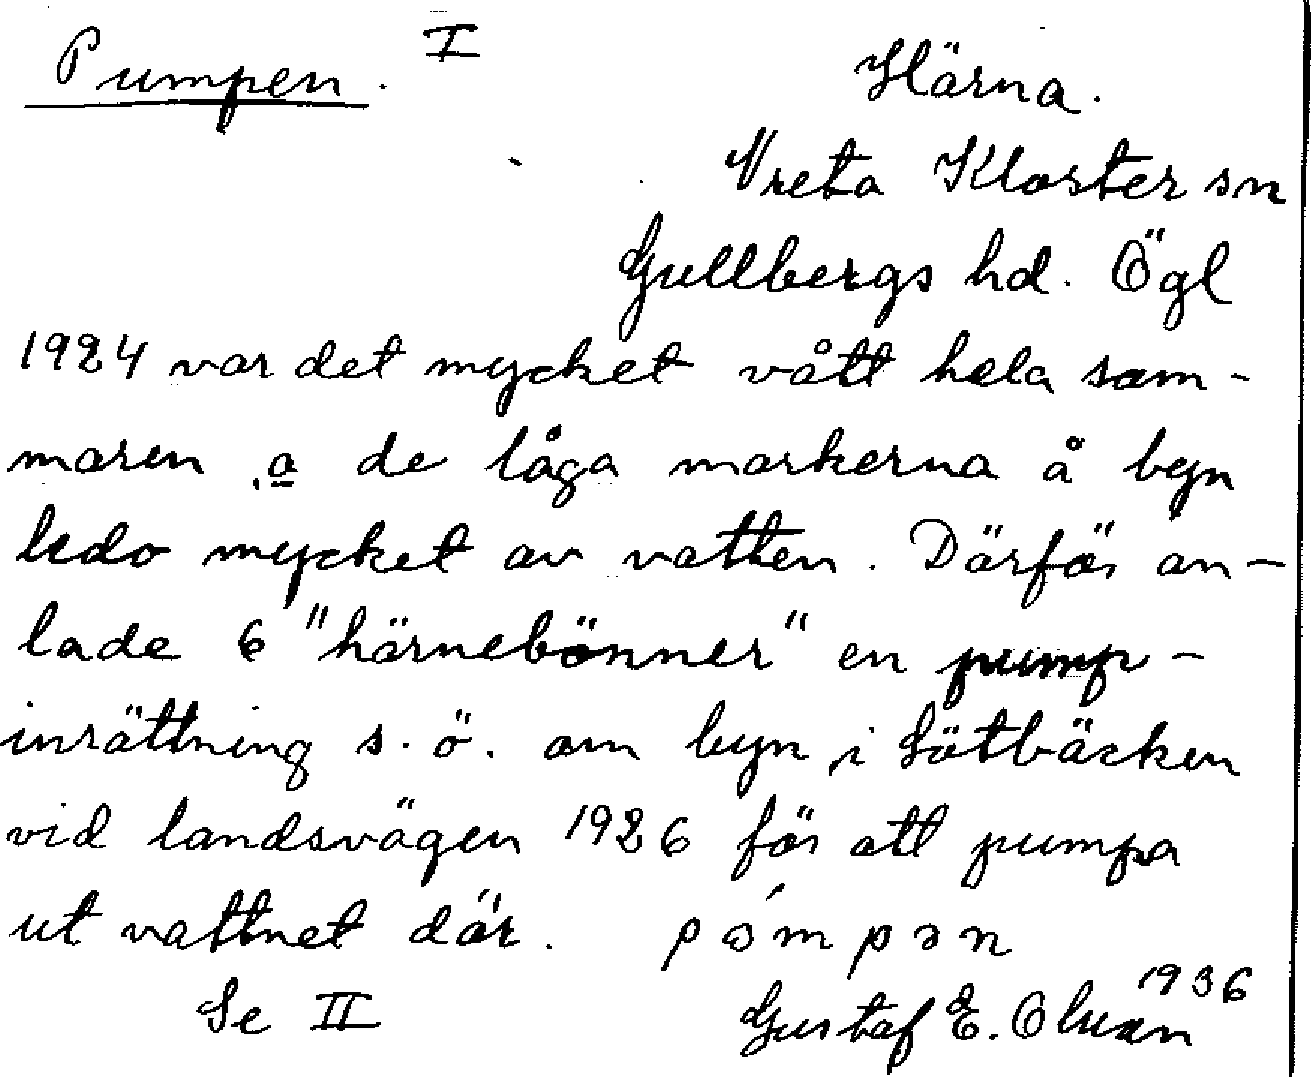 Pumpen. I
Härna.
Vreta Kloster sn
Gullbergs hd. Ögl
1924 var det mycket vått hela som-
maren o de låga markerna å byn
ledo mycket av vatten. Därför an-
lade 6 "härnebönner" en pump-
inrättning s.ö. om byn i Sötbäcken
vid landsvägen 1926 för att pumpa
ut vattnet där. pómpən
Se II
1936
Gustaf E. Olsson